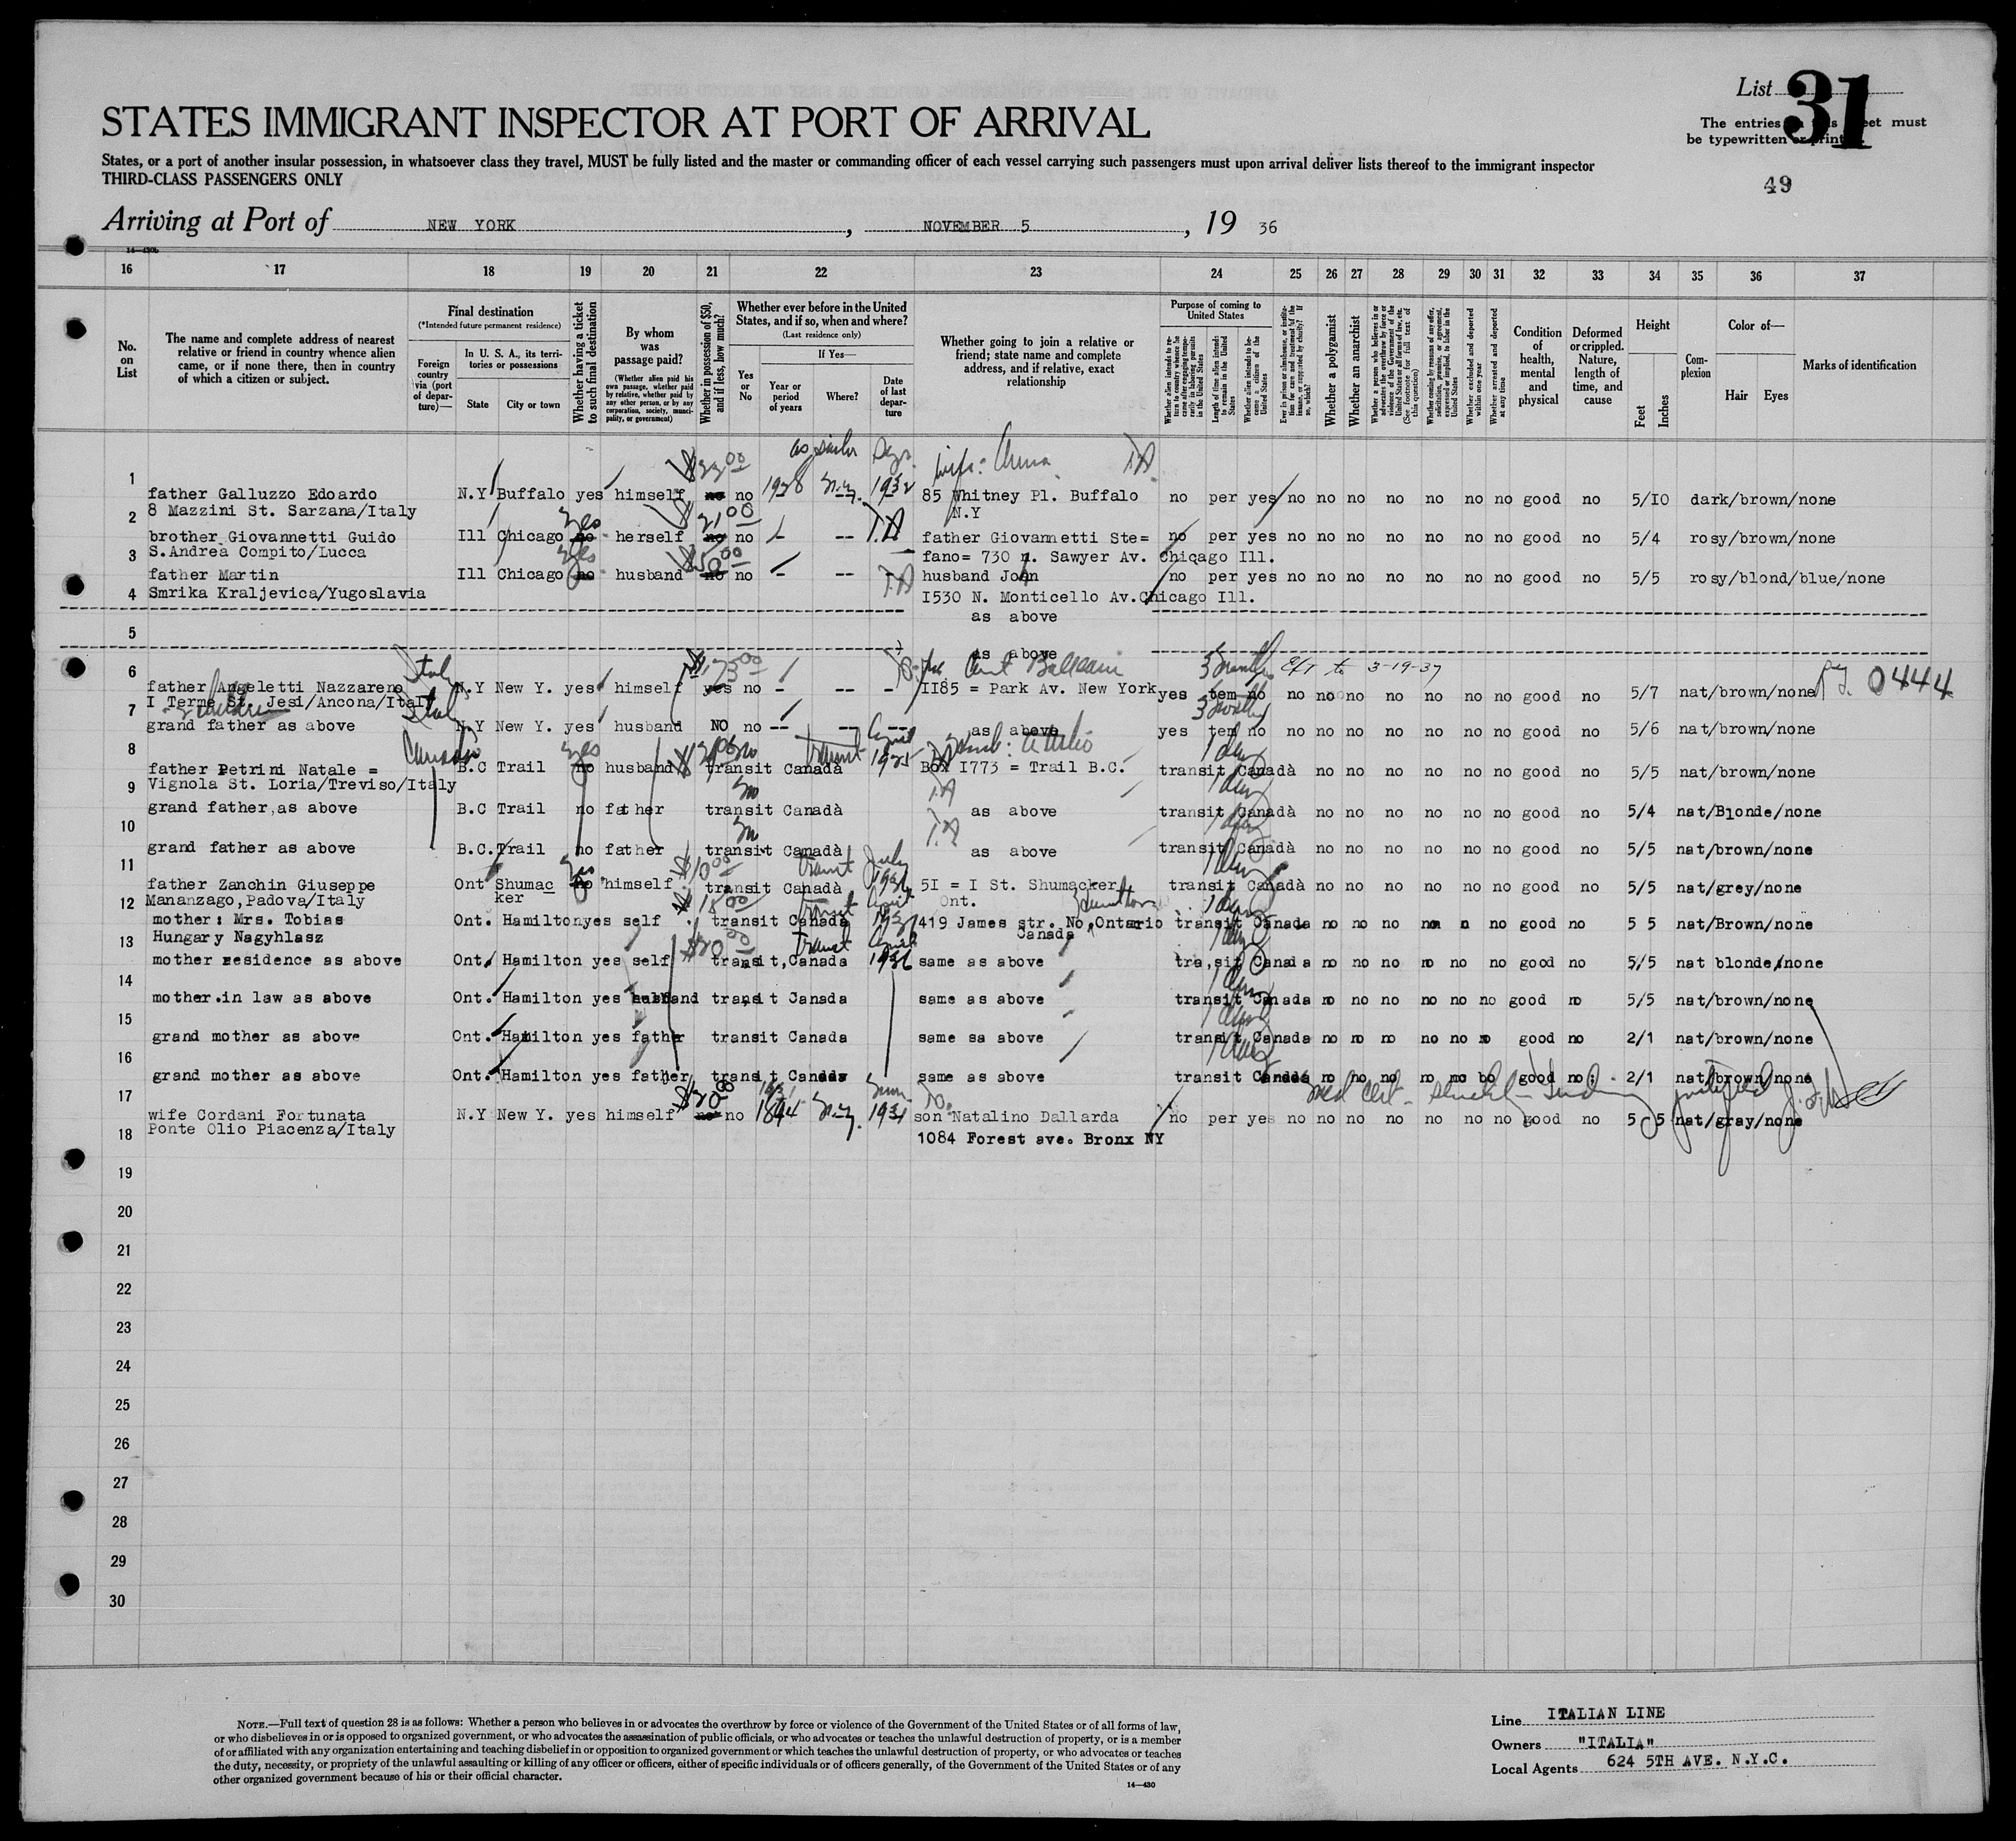 List 31
STATES IMMIGRANT INSPECTOR AT PORT OF ARRIVAL
The entries must
be typewritten or
States, or a port of another insular possession, in whatsoever class they travel, MUST be fully listed and the master or commanding officer of each vessel carrying such passengers must upon arrival deliver lists thereof to the immigrant inspector
THIRD-CLASS PASSENGERS ONLY
49
Arriving at Port of NEW YORK, NOVEMBER 5, 19 36
14-430b
16 17 18 19 20 21 22 23 24 25 26 27 28 29 30 31 32 33 34 35 36 37
No. on List
The name and complete address of nearest relative or friend in country whence alien came, or if none there, then in country of which a citizen or subject.
Final destination
(*Intended future permanent residence)
Foreign country via (port of departure)—
In U. S. A., its territories or possessions
State City or town
Whether having a ticket to such final destination
By whom was passage paid?
(Whether alien paid his own passage, whether paid by relative, whether paid by any other person, or by any corporation, society, municipality, or government)
Whether in possession of $50, and if less, how much?
Whether ever before in the United States, and if so, when and where?
(Last residence only)
Yes or No
If Yes—
Year or period of years
Where?
Date of last departure
Whether going to join a relative or friend; state name and complete address, and if relative, exact relationship
Purpose of coming to United States
Length of time alien intends to remain in the United States
Whether alien intends to become a citizen of the United States
Whether a polygamist
Whether an anarchist
Whether excluded and deported within one year
Whether arrested and deported at any time
Condition of health, mental and physical
Deformed or crippled. Nature, length of time, and cause
Height
Feet Inches
Complexion
Color of—
Hair Eyes
Marks of identification
as sailor
$23 00 wife: Anna
1
father Galluzzo Edoardo N.Y Buffalo yes himself no no 1928 N.Y. 1932 85 Whitney Pl. Buffalo no per yes no no no no no no no good no 5/10 dark/brown/none
8 Mazzini St. Sarzana/Italy N.Y
2
yes $21 00
brother Giovannetti Guido Ill Chicago no herself no no - -- father Giovannetti Ste= no per yes no no no no no no no good no 5/4 rosy/brown/none
3 S.Andrea Compito/Lucca fano= 730 n. Sawyer Av. Chiqago Ill.
yes $50 00
father Martin Ill Chicago no husband no no - -- - husband John no per yes no no no no no no no good no 5/5 rosy/blond/blue/none
4 Smrika Kraljevica/Yugoslavia I530 N. Monticello Av.Chicago Ill.
as above
5
as above
Italy $175 00 3 months to 3-19-37
6
father Angeletti Nazzareno N.Y New Y. yes himself yes no - -- - II85 = Park Av. New York yes tem no no no no no no no no good no 5/7 nat/brown/none 0444
I Terme St. Jesi/Ancona/Italy
7 Italy 3 months
grand father as above N.Y New Y. yes husband NO no -- -- -- as above yes tem no no no no no no no no good no 5/6 nat/brown/none
Canada yes transit 1925 husb: Attilio 1 day
8
father Petrini Natale = B.C Trail no husband transit Canadà Box I773 = Trail B.C. transit Canadà no no no no no no no good no 5/5 nat/brown/none
9 Vignola St. Loria/Treviso/Italy
1 day
grand father,as above B.C Trail no father transit Canadà as above transit Canadà no no no no no no no good no 5/4 nat/Blonde/none
10 1 day
grand father as above B.C.Trail no father transit Canadà as above transit Canadà no no no no no no no good no 5/5 nat/brown/none
11 yes $10 00 transit July 1 day
father Zanchin Giuseppe Ont Shumac no himself transit Canadà 5I = I St. Shumacker transit Canadà no no no no no no no good no 5/5 nat/grey/none
Mananzago,Padova/Italy ker Ont.
12 $18 00 transit 1 day
mother: Mrs. Tobias Ont. Hamilton yes self transit Canada 419 James str. No,Ontario transit Canada no no no no n no good no 5 5 nat/Brown/none
Hungary Nagyhlasz Canada
13 $20 transit 1 day
mother residence as above Ont. Hamilton yes self transit,Canada 1936 same as above tra,sit Canada no no no no no no good no 5/5 nat blonde/none
14 1 day
mother.in law as above Ont. Hamilton yes husband transit Canada same as above transit Canada no no no no no no good no 5/5 nat/brown/none
15 1 day
grand mother as above Ont. Hamilton yes father transit Canada same sa above transit Canada no no no no no no good no 2/1 nat/brown/none
16 1 day
grand mother as above Ont. Hamilton yes father transit Canada same as above transit Canada no no no no no bo good no 2/1 nat/brown/none
17 $20 00 1931 Med Cert
wife Cordani Fortunata N.Y New Y. yes himself no no 1894 N.Y. 1931 son Natalino Dallarda no per yes no no no no no no no good no 5 5 nat/gray/none
18 Ponte Olio Piacenza/Italy 1084 Forest ave. Bronx NY
19
20
21
22
23
24
25
26
27
28
29
30
NOTE.—Full text of question 28 is as follows: Whether a person who believes in or advocates the overthrow by force or violence of the Government of the United States or of all forms of law,
or who disbelieves in or is opposed to organized government, or who advocates the assassination of public officials, or who advocates or teaches the unlawful destruction of property, or is a member
of or affiliated with any organization entertaining and teaching disbelief in or opposition to organized government or which teaches the unlawful destruction of property, or who advocates or teaches
the duty, necessity, or propriety of the unlawful assaulting or killing of any officer or officers, either of specific individuals or of officers generally, of the Government of the United States or of any
other organized government because of his or their official character.
14—430
Line ITALIAN LINE
Owners "ITALIA"
Local Agents 624 5TH AVE. N.Y.C.